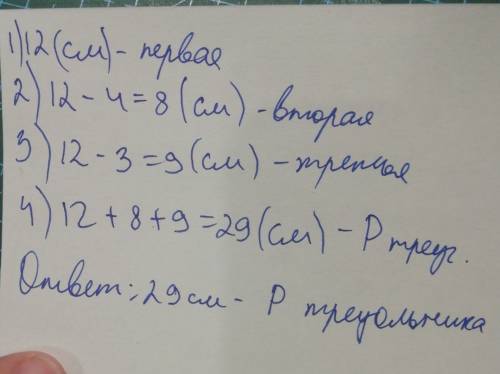 1) 12 (см) - первая
2) 12 - 4 = 8 (см) - вторая
3) 12 - 3 = 9 (см) - третья
4) 12 + 8 + 9 = 29 (см) - Р треуг.
Ответ: 29 см - Р треуольника